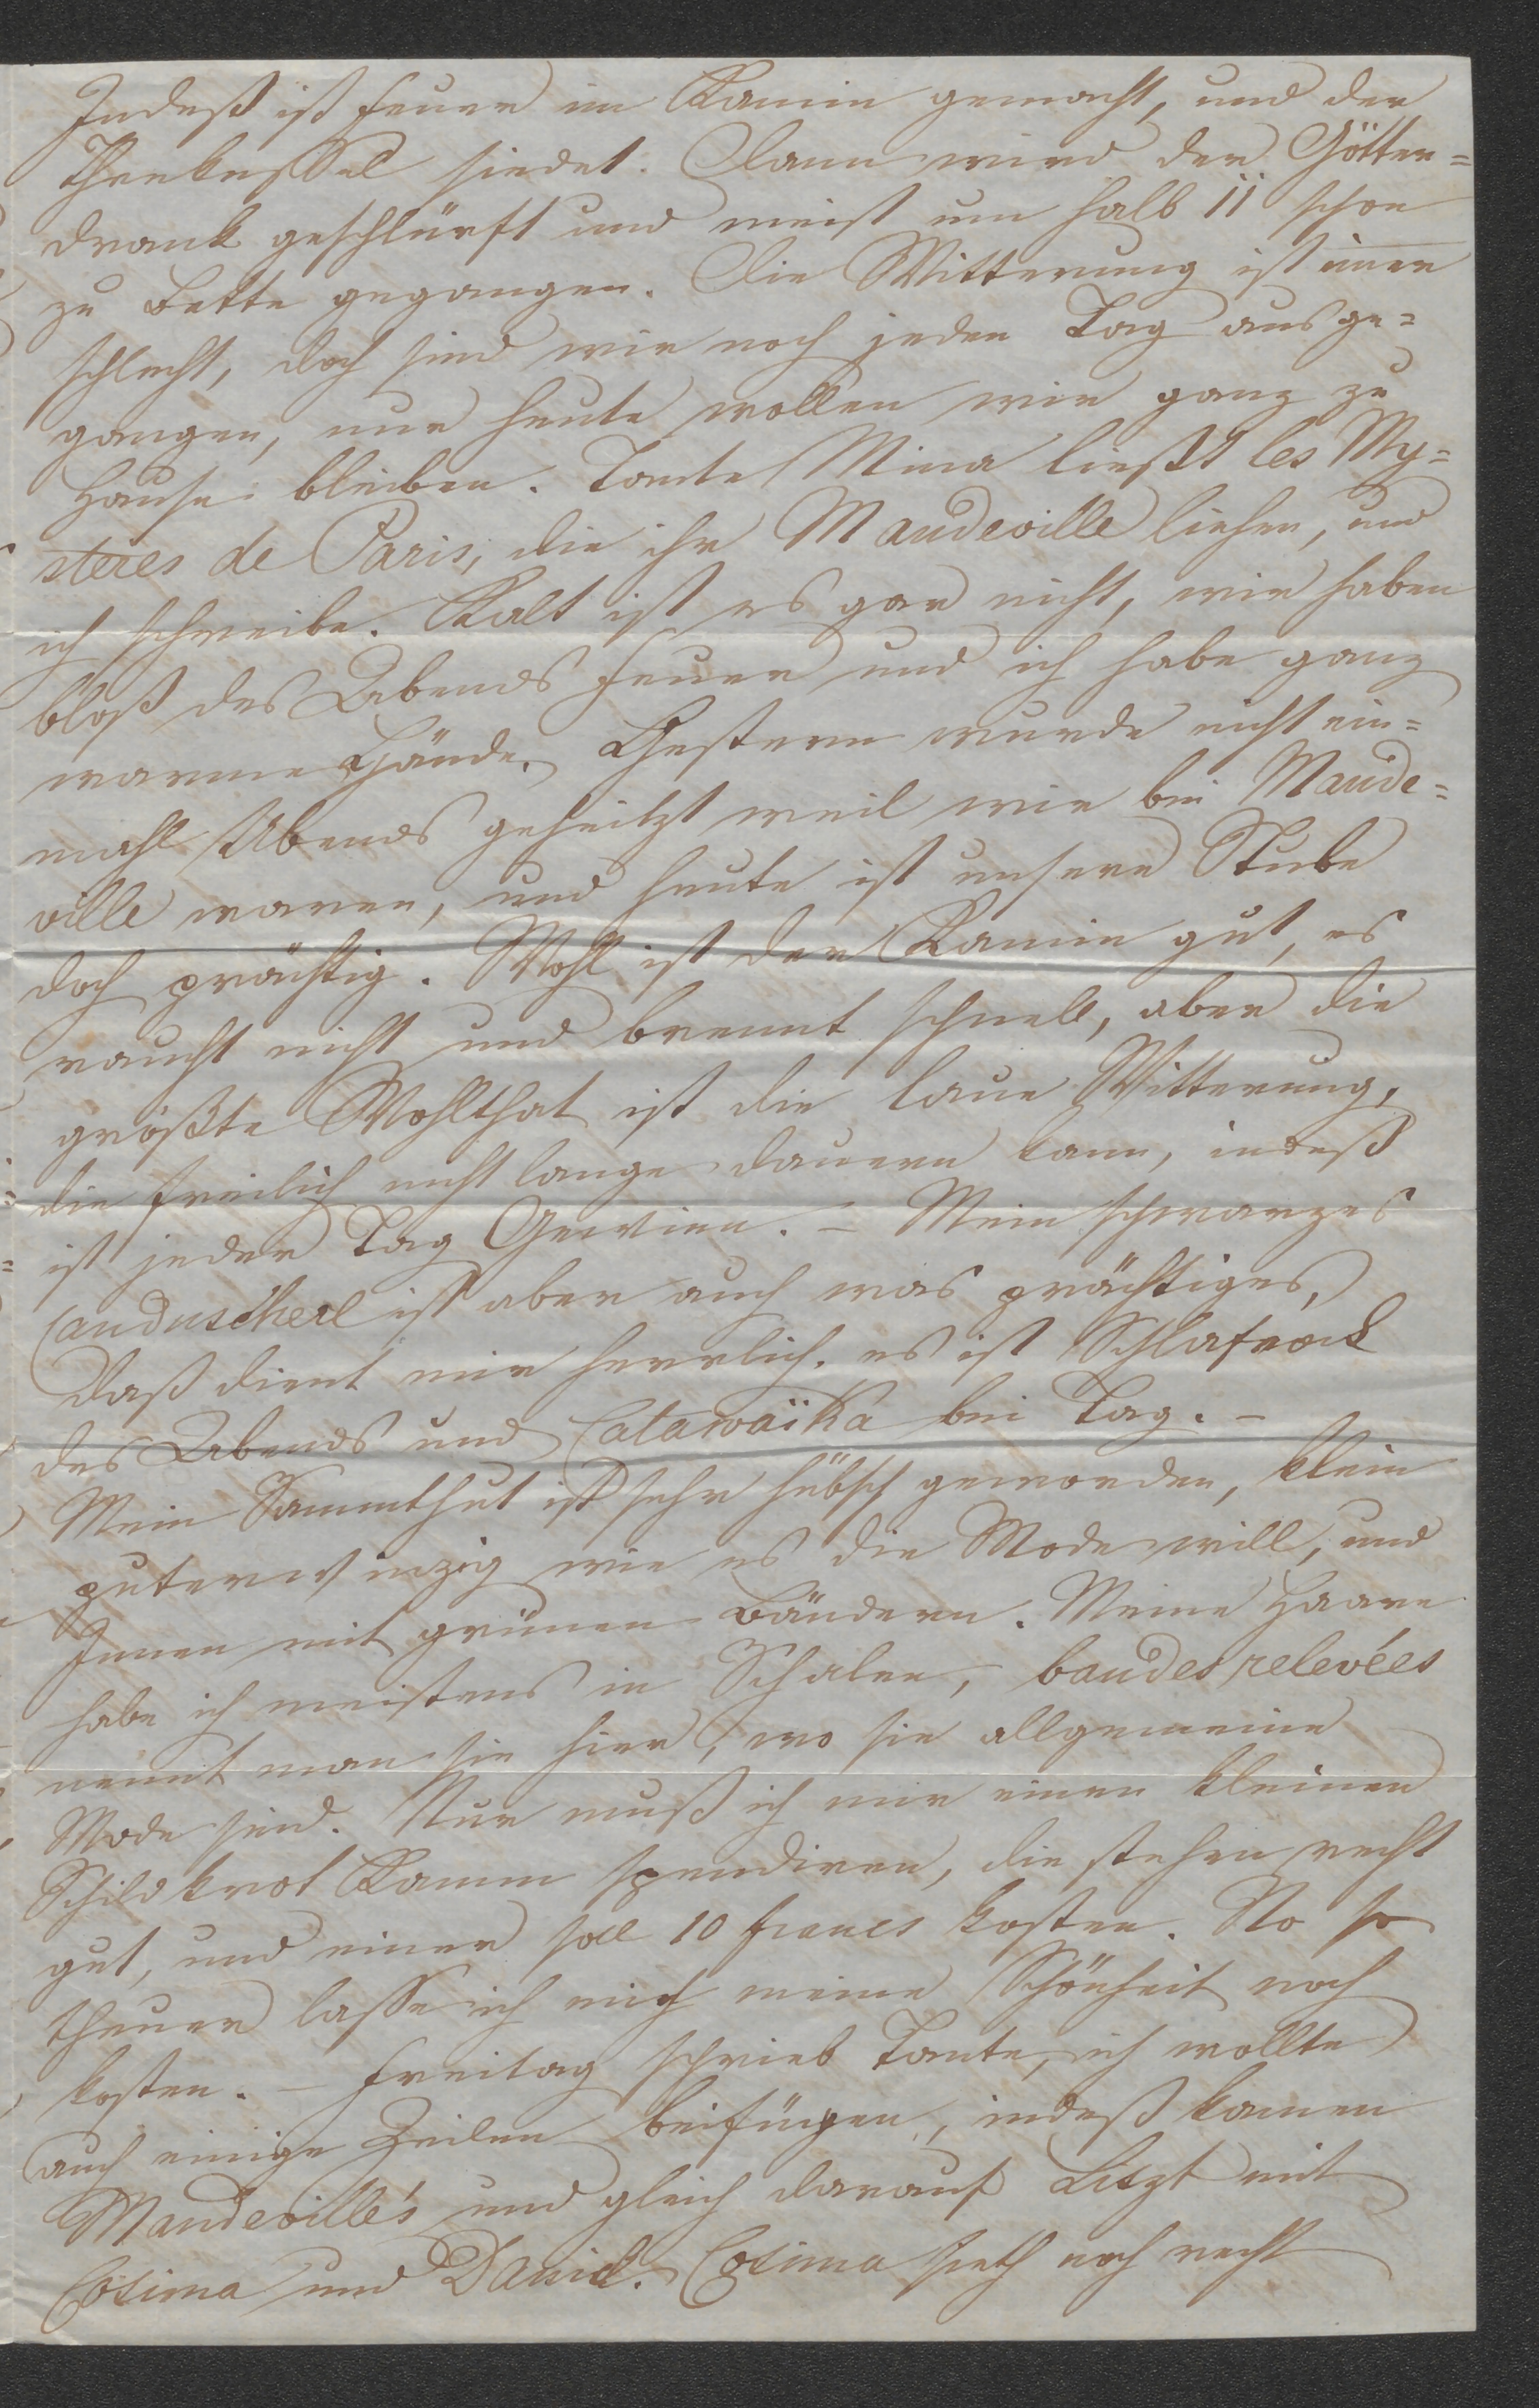 Indeß ist Feuer im Kamin gemacht, und der
Theekessel siedet. Dann wird der Götter=
drank geschlürft und meist um halb 11 schon
zu Bette gegangen. Die Witterung ist im̅er
schlecht, doch sind wir noch jeden Tag ausge=
gangen, nur heute wollen wir ganz zu
Hause bleiben. Tante Mina ließt les My=
steres de Paris, die ihr Mandeville liehen, und
ich schreibe. Kalt ist es gar nicht, wir haben
bloß des Abends Feuer und ich habe ganz
warme Hände. Gestern wurde nicht ein=
mahl Abends geheitzt weil wir bei Mande=
ville waren, und heute ist unsere Stube
doch prächtig. Wohl ist der Kamin gut, es
raucht nicht und brennt schnell, aber die
größte Wohlthat ist die laue Witterung,
die freilich nicht lange dauern kann, indeß
ist jeder Tag Gewinn. – Mein schwarzes
ist aber auch was prächtiges,
daß dient mir herrlich. es ist Schlafrock
des Abends und Catawaïka bei Tag. –
Mein Sammthut ist sehr hübsch geworden, klein
puterwinzig wie es die Mode will, und
Innen mit grünen Bändern. Meine Haare
habe ich meistens in Schalen, bandes relevées
nennt man sie hier, wo sie allgemeine
Mode sind. Nur muß ich mir einen kleinen
Schildkrot Kamm spendiren, die stehen recht
gut, und einer soll 10 francs kosten. No so
theuer lasse ich mich meine Schönheit noch
kosten. – Freitag schrieb Tante, ich wollte
auch einige Zeilen beifügen, indeß kamen
Mandeville's und gleich darauf Liszt mit
Cosima und Daniel. Cosima sieth noch recht